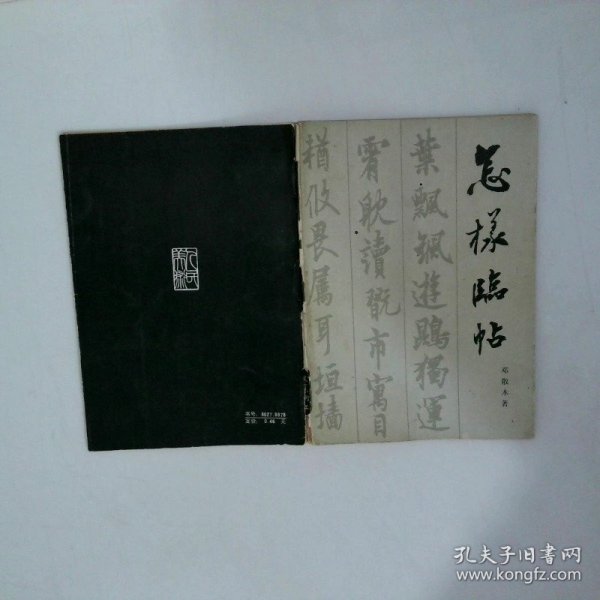 怎樣臨帖
邓散木著
葉飄颻遊鵾獨運
霄耽讀翫市寓目
猶攸畏属耳垣墻
人民美術
书号:8027.6878
定价: 0.66 元
孔夫子旧书网
www.kongfz.com